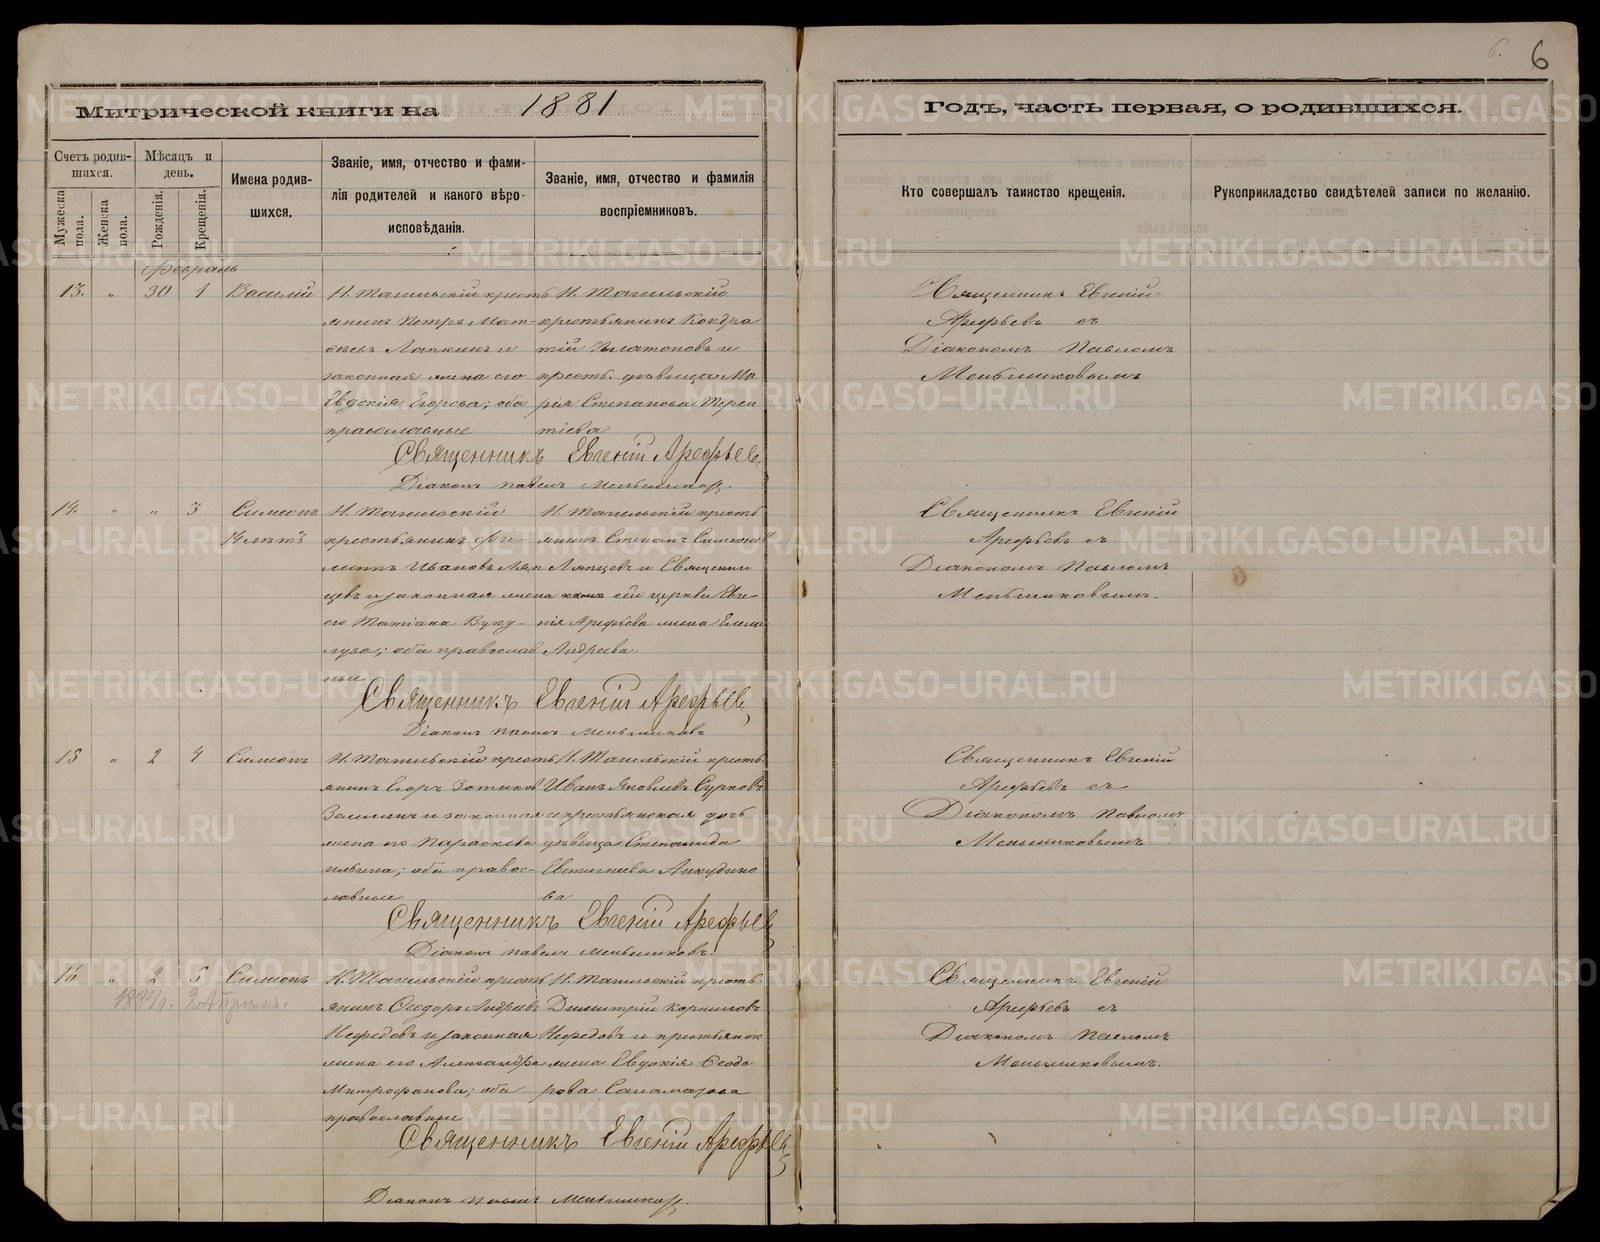 6.
6
Митрической книги на 1881
Годъ, часть первая, о родившихся.
Счетъ родив-
шихся.
Мужеска
пола.
Женска
пола.
Мѣсяцъ и
день.
Рожденія.
Крещенія.
Имена родив-
шихся.
Званіе, имя, отчество и фами-
лія родителей и какого вѣро-
исповѣданія.
Званіе, имя, отчество и фамилія
воспріемниковъ.
Кто совершалъ таинство крещенія.
Рукоприкладство свидѣтелей записи по желанію.
Февраль
13. " 30 1 Василій
Н. Тагильскій кресть
янинъ Петръ Мат-
Лапкинъ и
законная жена его
Евдокія Егорова; оба
православные
Н. Тагильскій
крестьянинъ Кондра
тій Платоновъ и
крест. дѣвица Ма
рія Степанова Терен
тіева
Священникъ Евгеній
Арефьевъ съ
Діакономъ Павломъ
Меньшиковымъ
Священникъ Евгеній Арефьевъ
Діаконъ Павелъ Меньшиковъ.
14. " " 3 Симеонъ
Н. Тагильскій
крестьянинъ Фи-
липпъ Ивановъ Ляп
цевъ и законная жена
его Татіана Вуку-
лова; оба православ
ные
Н. Тагильскій кресть
янинъ Степанъ Симеоновъ
Ляпцевъ и Священни
сей церкви Евге-
нія Арефьева жена Елена
Андреева.
Священникъ Евгеній
Арефьевъ съ
Діакономъ Павломъ
Меньшиковымъ.
Священникъ Евгеній Арефьевъ
Діаконъ Павелъ Меньшиковъ
15 " 2 4 Симеонъ
Н. Тагильскій кресть
янинъ Егоръ Зотиковъ
Земинъ и законная
жена его Параскева
Ильина; оба правос-
лавные
Н. Тагильскій кресть
Иванъ Яковлевъ Сурковъ
и крестьянская дочь
дѣвица Степанида
Евстигнеева Анкудино
ва
Священникъ Евгеній
Арефьевъ съ
Діакономъ Павломъ
Меньшиковымъ
Священникъ Евгеній Арефьевъ
Діаконъ Павелъ Меньшиковъ.
16. " 2 5 Симеонъ
Н. Тагильскій кресть
янинъ Ѳеодоръ Андреевъ
Нефедовъ и законная
жена его Александра
Митрофанова; оба
православные
Н. Тагильскій кресть
Димитрій Корниловъ
Нефедовъ и крестьянск
жена Евдокія Ѳеодо
рова Саламатова
Священникъ Евгеній
Арефьевъ съ
Діакономъ Павломъ
Меньшиковымъ.
Священникъ Евгеній Арефьевъ
Діаконъ Павелъ Меньшиковъ.
METRIKI.GASO-URAL.RU